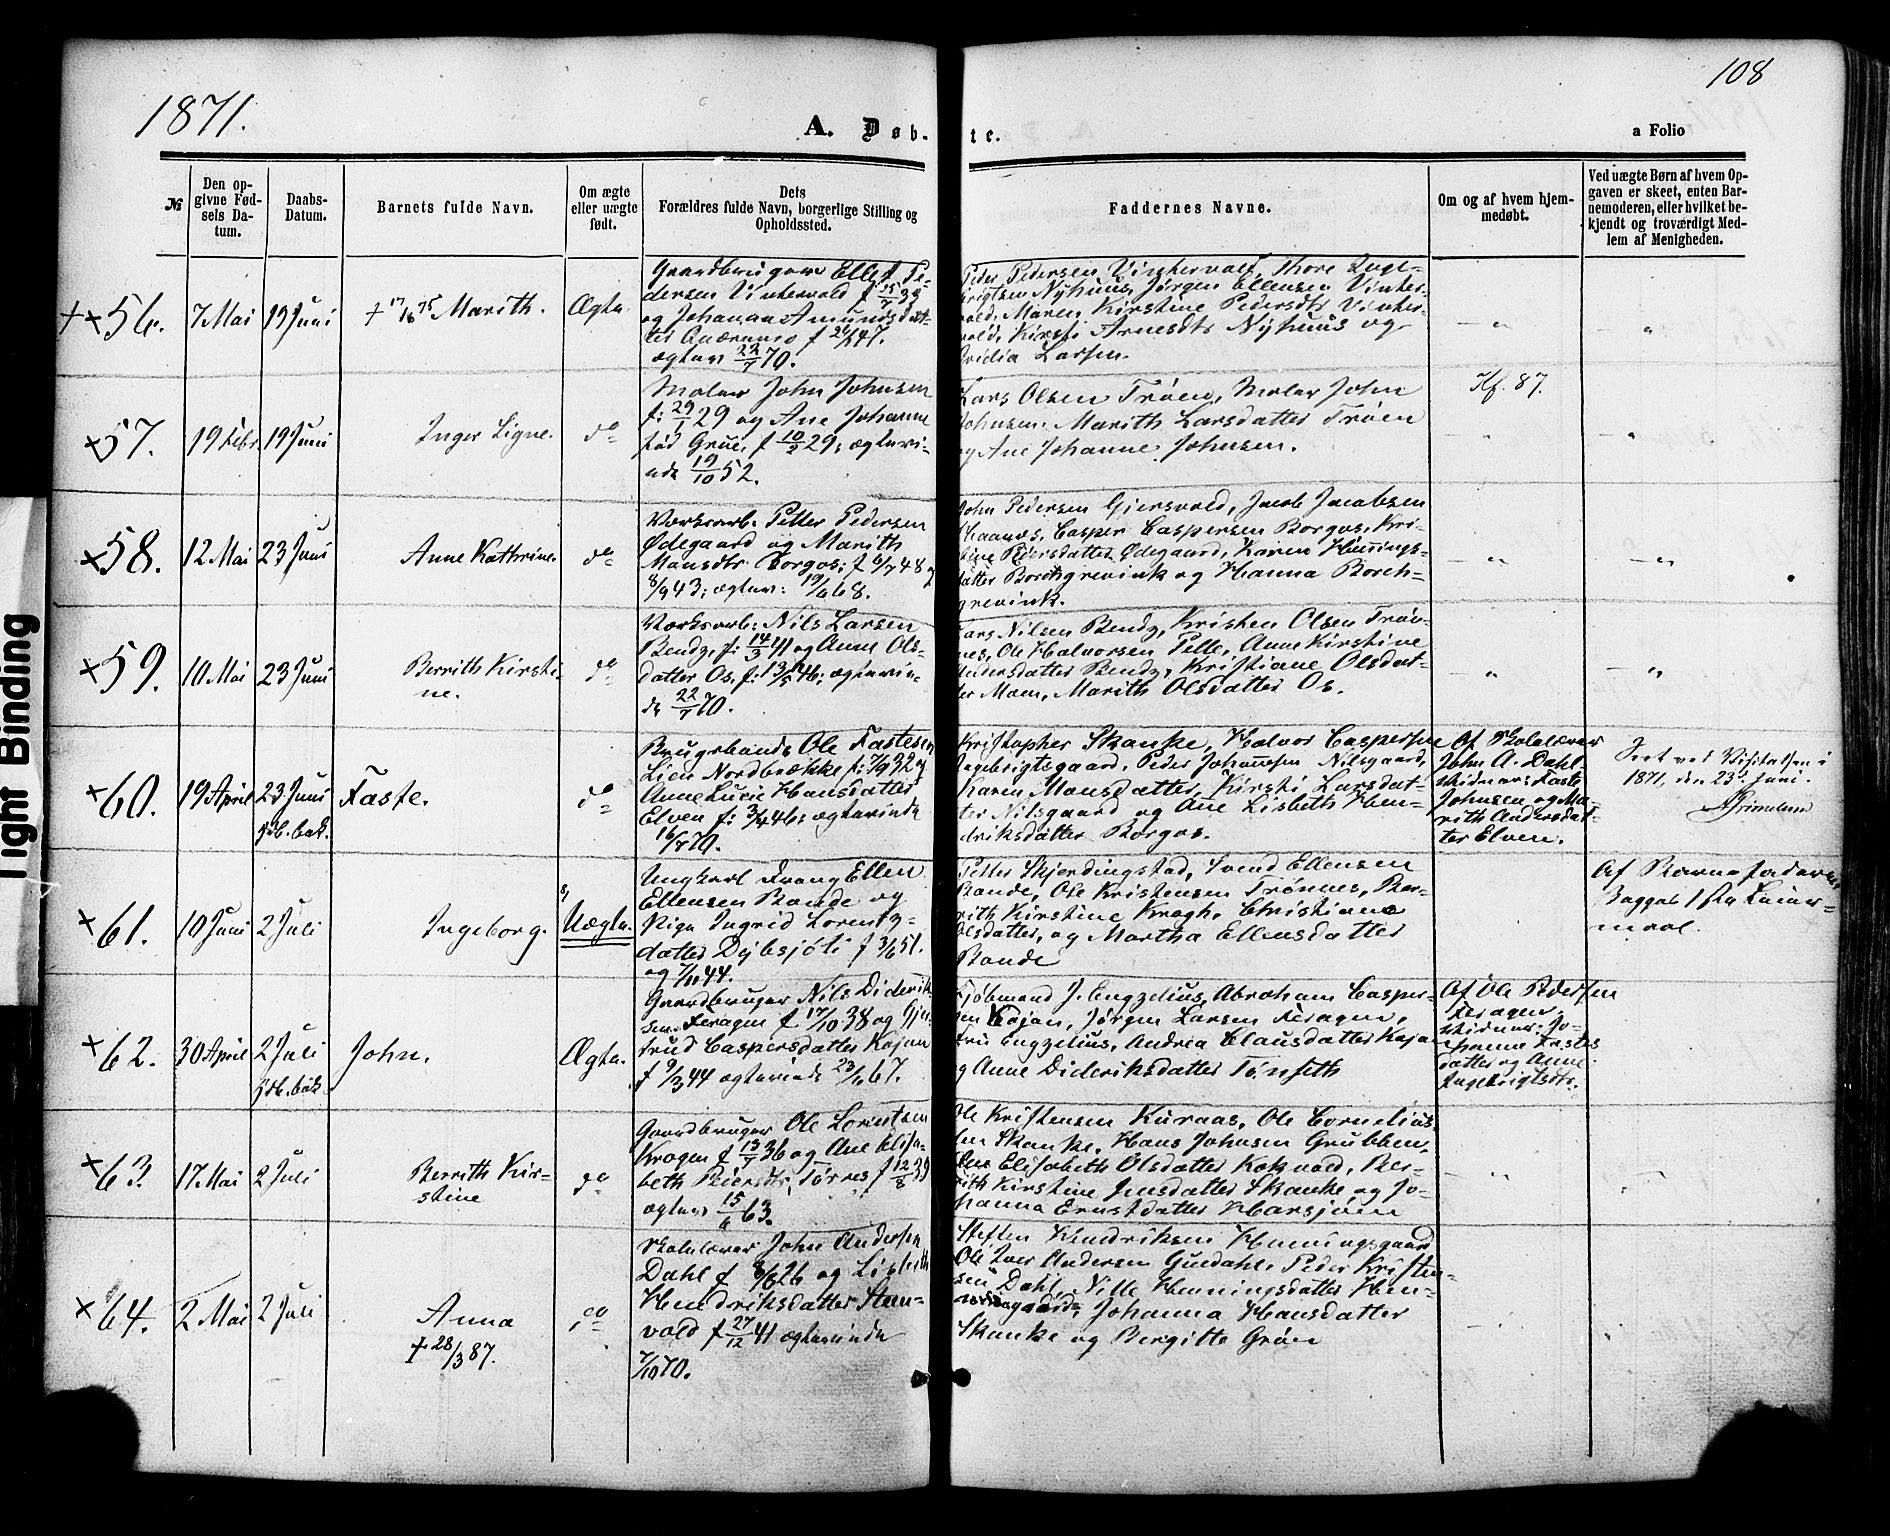 108
1871.
A. Døb- te.
a Folio
№
Den op-
givne Fød-
sels Da-
tum.
Daabs-
Datum.
Barnets fulde Navn.
Om ægte
eller uægte
født.
Dets
Forældres fulde Navn, borgerlige Stilling og
Opholdssted.
Faddernes Navne.
Om og af hvem hjem-
medøbt.
Ved uægte Børn af hvem Op-
gaven er skeet, enten Bar-
nemoderen, eller hvilket be-
kjendt og troværdigt Med-
lem af Menigheden.
56.
7 Mai
19 Juni
Marith.
Ægte.
Gaardbruger Ellef Pe-
dersen Vintervold f 25/7 39
og Johanna Amundsdat-
f 24/2 47.
ægtev: 22/7 70.
Peder Pedersen Vintervold, Thore Inge-
brigtsen Nyhuus, Jørgen Ellensen Vinter-
vold, Maren Kirstine Pedersdtr Vinter-
vold, Kirsti Arnesdtr Nyhuus og
Larsen.
57.
19 Febr
19 Juni
Inger Ligne.
do
Maler John Johnsen
f: 29/1 29 og Ane Johanne
fød Grue, f 10/2 29; ægtevi-
ede 19/10 52.
Lars Olsen Trøen, Maler John
Johnsen, Marith Larsdatter Trøen
og Ane Johanne Johnsen.
Kf. 87.
58.
12 Mai
23 Juni
Anne Kathrine.
do
Værksarb. Petter Pedersen
Ødegaard og Marith
Monsdtr Borgos; f 6/7 48 og
8/9 43; ægtev: 19/6 68.
John Pedersen Gjersvold, Jacob Jacobsen
Haanes, Casper Caspersen Borgos, Kri-
stine Pedersdatter Ødegaard, Karen Hennings-
datter Borchgrevink og Hanna Borch-
grevink.
59.
10 Mai
23 Juni
Berrith Kirsti-
ne.
do
Værksarb: Nils Larsen
Bendz, f: 14/3 41 og Anne Ols-
datter Os, f: 13/5 46; ægtevie-
de 22/7 70.
Lars Nilsen Bendz, Kristen Olsen Trøn-
nes, Ole Halvorsen Pelle, Anne Kirstine
Andersdatter Bendz, Kristiane Olsdat-
ter Moen, Marith Olsdatter Os.
60.
19 April
23 Juni
Faste.
do
Brugsbonde Ole Fastesen
Lien Nordbrække f: 7/9 32 og
Anne Lucie Hansdatter
Elven f: 3/4 46; ægteviede
16/7 70.
Kristopher Skanke, Halvor Caspersen
Ingebrigtsgaard, Peder Johannesen Nilsgaard,
Karen Monsdatter, Kirsti Larsdat-
ter Nilsgaard og Ane Lisbeth Hen-
driksdatter Borgos.
Af Skolelærer
John A. Dahl
vidner: Faste
Johnsen og Ma-
rith Andersdat-
ter Elven.
Seet ved Visitatsen i
1871, den 23de Juni.
61.
10 Juni
2 Juli
Ingeborg.
Uægte.
Ungkarl Frang Ellen
Ellensen Rande og
Pige Ingrid Lorentz-
datter Dybsjøli f 3/6 51.
og 7/11 44.
Petter Skjerdingstad, Svend Ellensen
Rande, Ole Kristensen Trønnes, Ber-
rith Kirstine Krogh, Christiane
Olsdatter, og Martha Ellensdatter
Rande
Af Barnefaderen
Begges 1ste Leier-
maal.
62.
30 April
2 Juli
John.
Ægte.
Gaardbruger Nils Diderik-
sen Feragen f 17/10 38 og Gjer-
trud Caspersdatter Kojan
f 9/3 44 ægteviede 23/11 67.
Kjøbmand J. Engzelius, Abraham Casper-
sen Kojan, Jørgen Larsen Feragen,
Fru Engzelius, Andrea Clausdatter Kojan
og Anne Dideriksdatter Tønseth
Af Ole Pedersen
Feragen
vidner: Jo-
hanne Fastes
datter og Anne
Ingebrigtsdtr.
63.
17 Mai
2 Juli
Berrith Kir-
stine
do
Gaardbruger Ole Lorentsen
Kragen f 13/7 36 og Ane Elisa-
beth Peersdtr, Tørres f 12/8 39
ægtev: 15/6 63.
Ole Kristensen Kuraas, Ole Cornelius-
sen Skanke, Hans Johnsen Grubben,
Ane Elisabeth Olsdatter Kokvold, Ber-
rith Kirstine Jensdatter Skanke, og Jo-
hanna Ernstdatter Harsjøen
64.
2 Mai
2 Juli
Anna
† 28/3 87.
do
Skolelærer John Andersen
Dahl f 8/8 26 og Lisbeth
Hendriksdatter Steen-
vold f 27/12 41 ægteviede
7/10 70.
Steffen Hendriksen Henningsgaard
Ole Iver Andersen Guldahl, Peder Kristen-
sen Dahl, Nille Henningsdatter Hen-
ningsgaard, Johanna Hansdatter
Skanke og Bergitte Grøn
Tight Binding